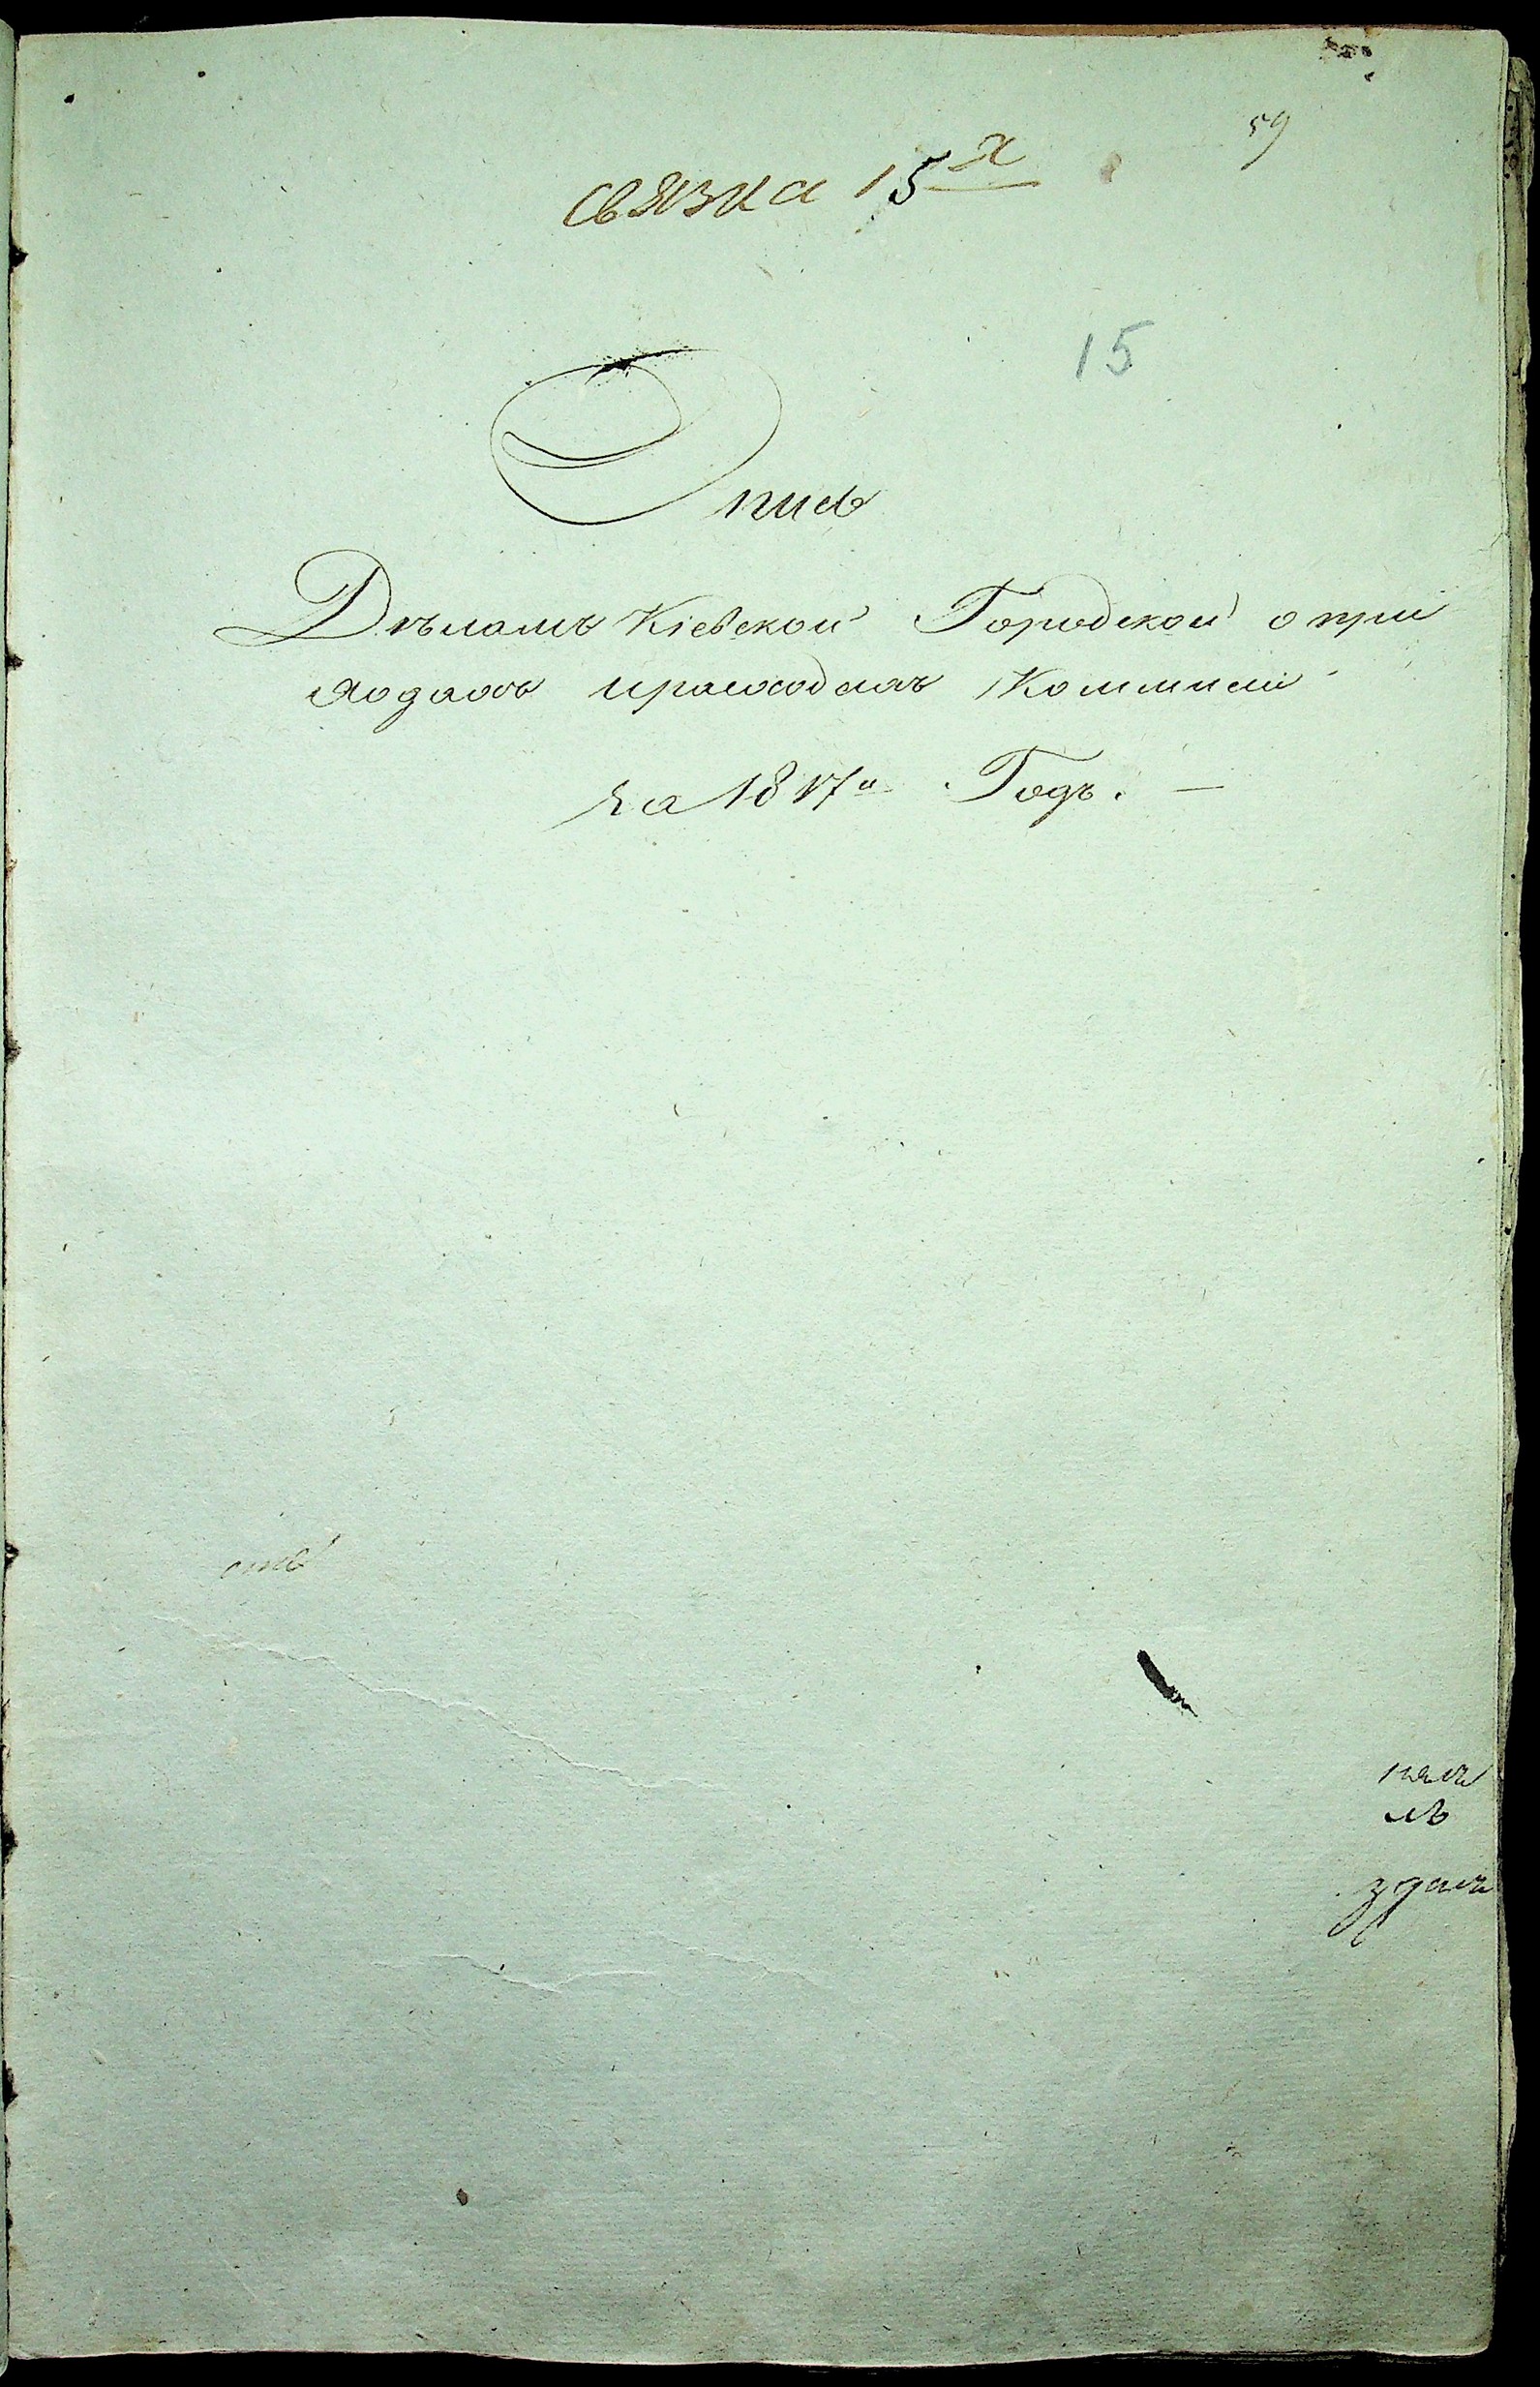 59
связка 15я
15
Опись
Дѣламъ Кіевской Городской о при
ходахъ ирасходахъ Коммисіи
за 1817й Годъ. —